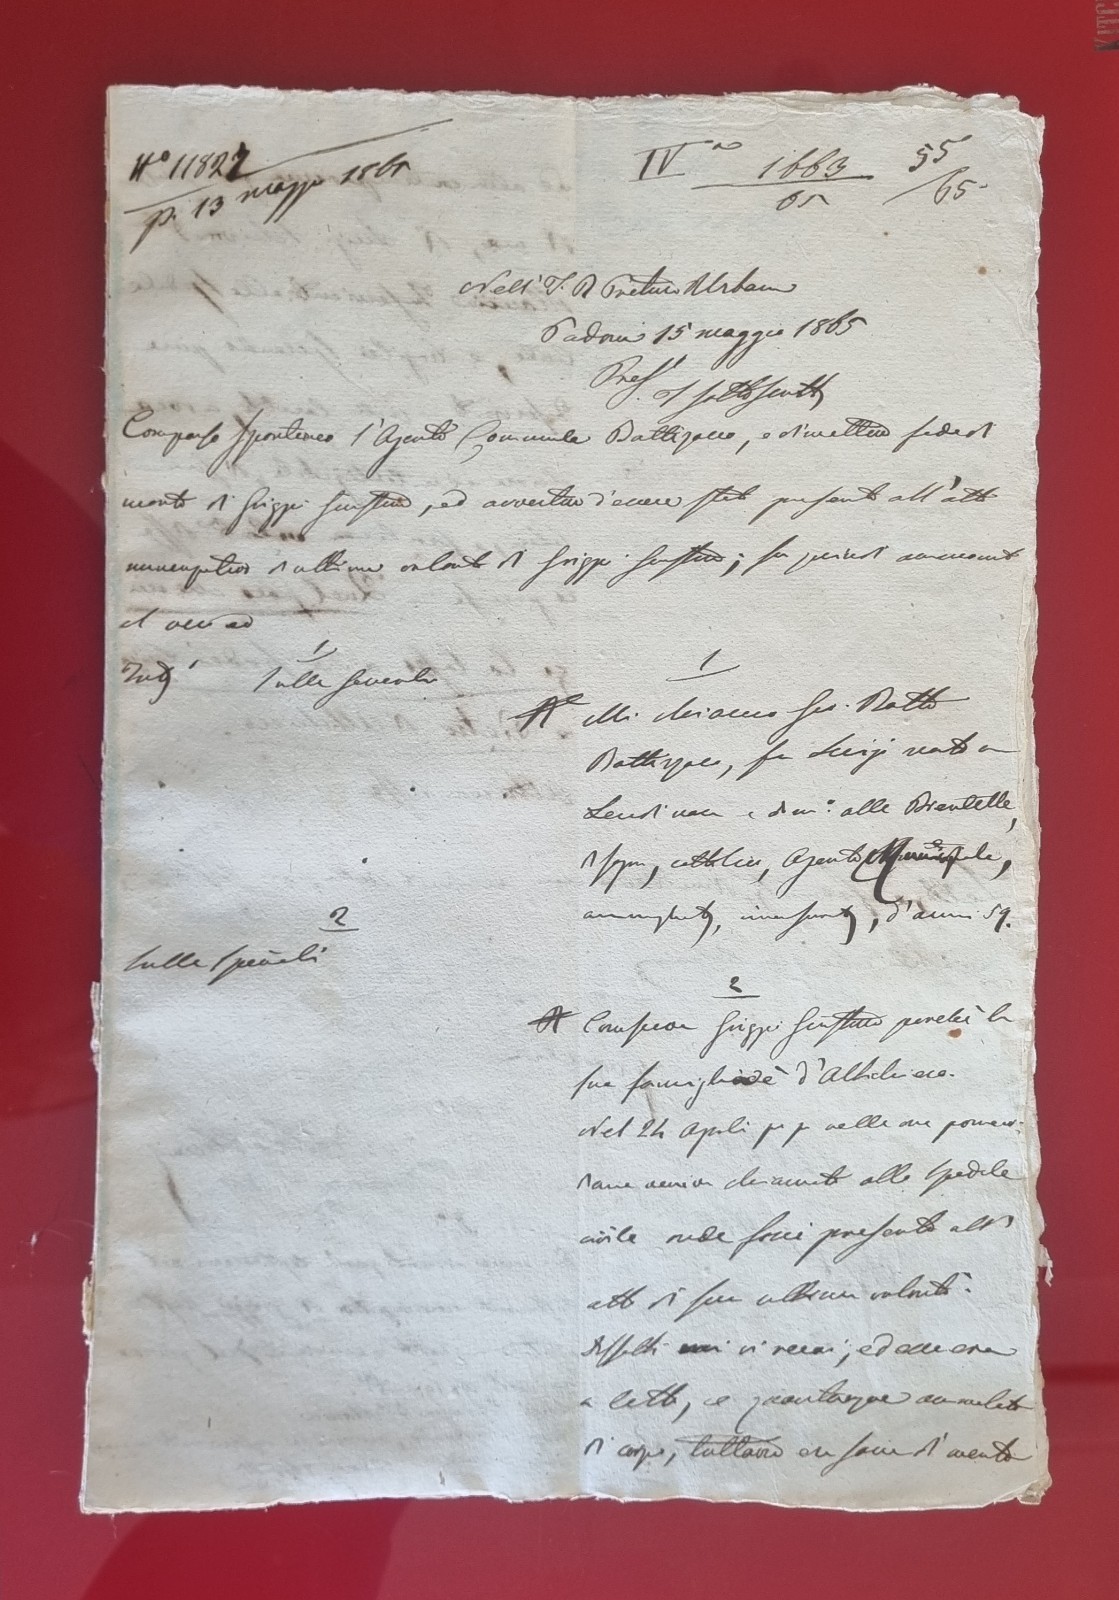 N° 11827
p. 13 maggio 1865
IV 1663 55
65 65
Nell' I. R. Pretura Urbana
Padova 15 maggio 1865
Pres.ti I sottoscritti
Comparso spontaneo l'Agente Comunale Battizocco, e dimettendo fede di
morte di Griggi Giustina, ed avvertendo d'essere stato presente all'atto
nuncupativo d'ultima volontà di Griggi Giustina; fu quindi ammonito
al vero ed
Int.° 1 Sulle generali
1
R Mi chiamo Gio. Batta
Battizocco, fu Luigi nato a
e dom.° alle Brentelle,
di sopra, cattolico, Agente Comunale,
ammogliato, incensurato, d'anni 59.
2
Sulle speciali
2
R Conosceva Griggi Giustina perchè la
sua famiglia è d'Altichiero.
Nel 24 Aprile p p nelle ore pomeri-
diane veniva chiamato allo Spedale
civile onde fossi presente all'
atto di sua ultima volontà.
Difatti mi vi recai, ed essa era
a letto, e quantunque ammalata
di corpo, tuttavia era sana di mente